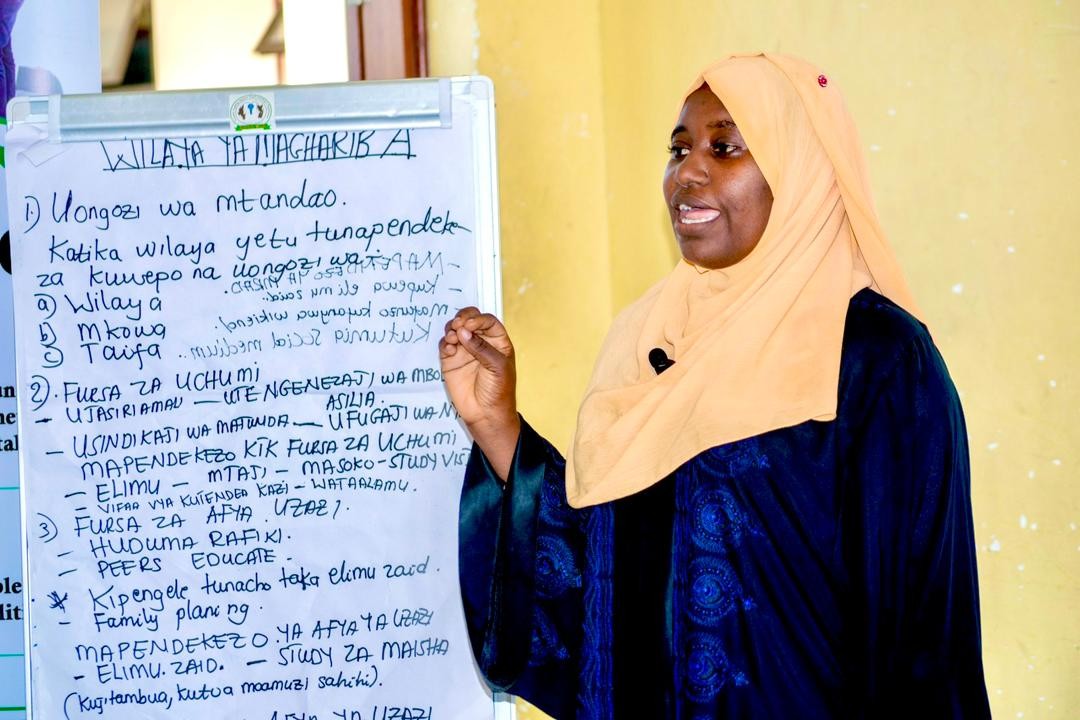 WILAYA YA MAGHARIB A
1) Uongozi wa mtandao.
Katika wilaya yetu tunapendeke-
za kuwepo na uongozi wa;
a) Wilaya
b) Mkowa
c) Taifa
- MAPENDEKEZO YA MIRADI.
- Kupewa elimu zaid.
- Mafunzo kufanywa wikiend.
Kutumia Social medium..
2). FURSA ZA UCHUMI
- UJASIRIAMALI — UTENGENEZAJI WA MBOL
ASILIA.
- USINDIKAJI WA MATUNDA — UFUGAJI WA
MAPENDEKEZO KTK FURSA ZA UCHUMI
- ELIMU - MTAJI - MASOKO - STUDY VIS
- VIFAA VYA KUTENDEA KAZI - WATAALAMU.
3) FURSA ZA AFYA UZAZI.
- HUDUMA RAFIKI.
- PEERS EDUCATE -
* Kipengele tunacho taka elimu zaid.
- Family planing.
MAPENDEKEZO YA AFYA YA UZAZI
- ELIMU. ZAID. - STUDY ZA MAISHA
(Kujitambua, kutoa maamuzi sahihi).
AFYA YA UZAZI